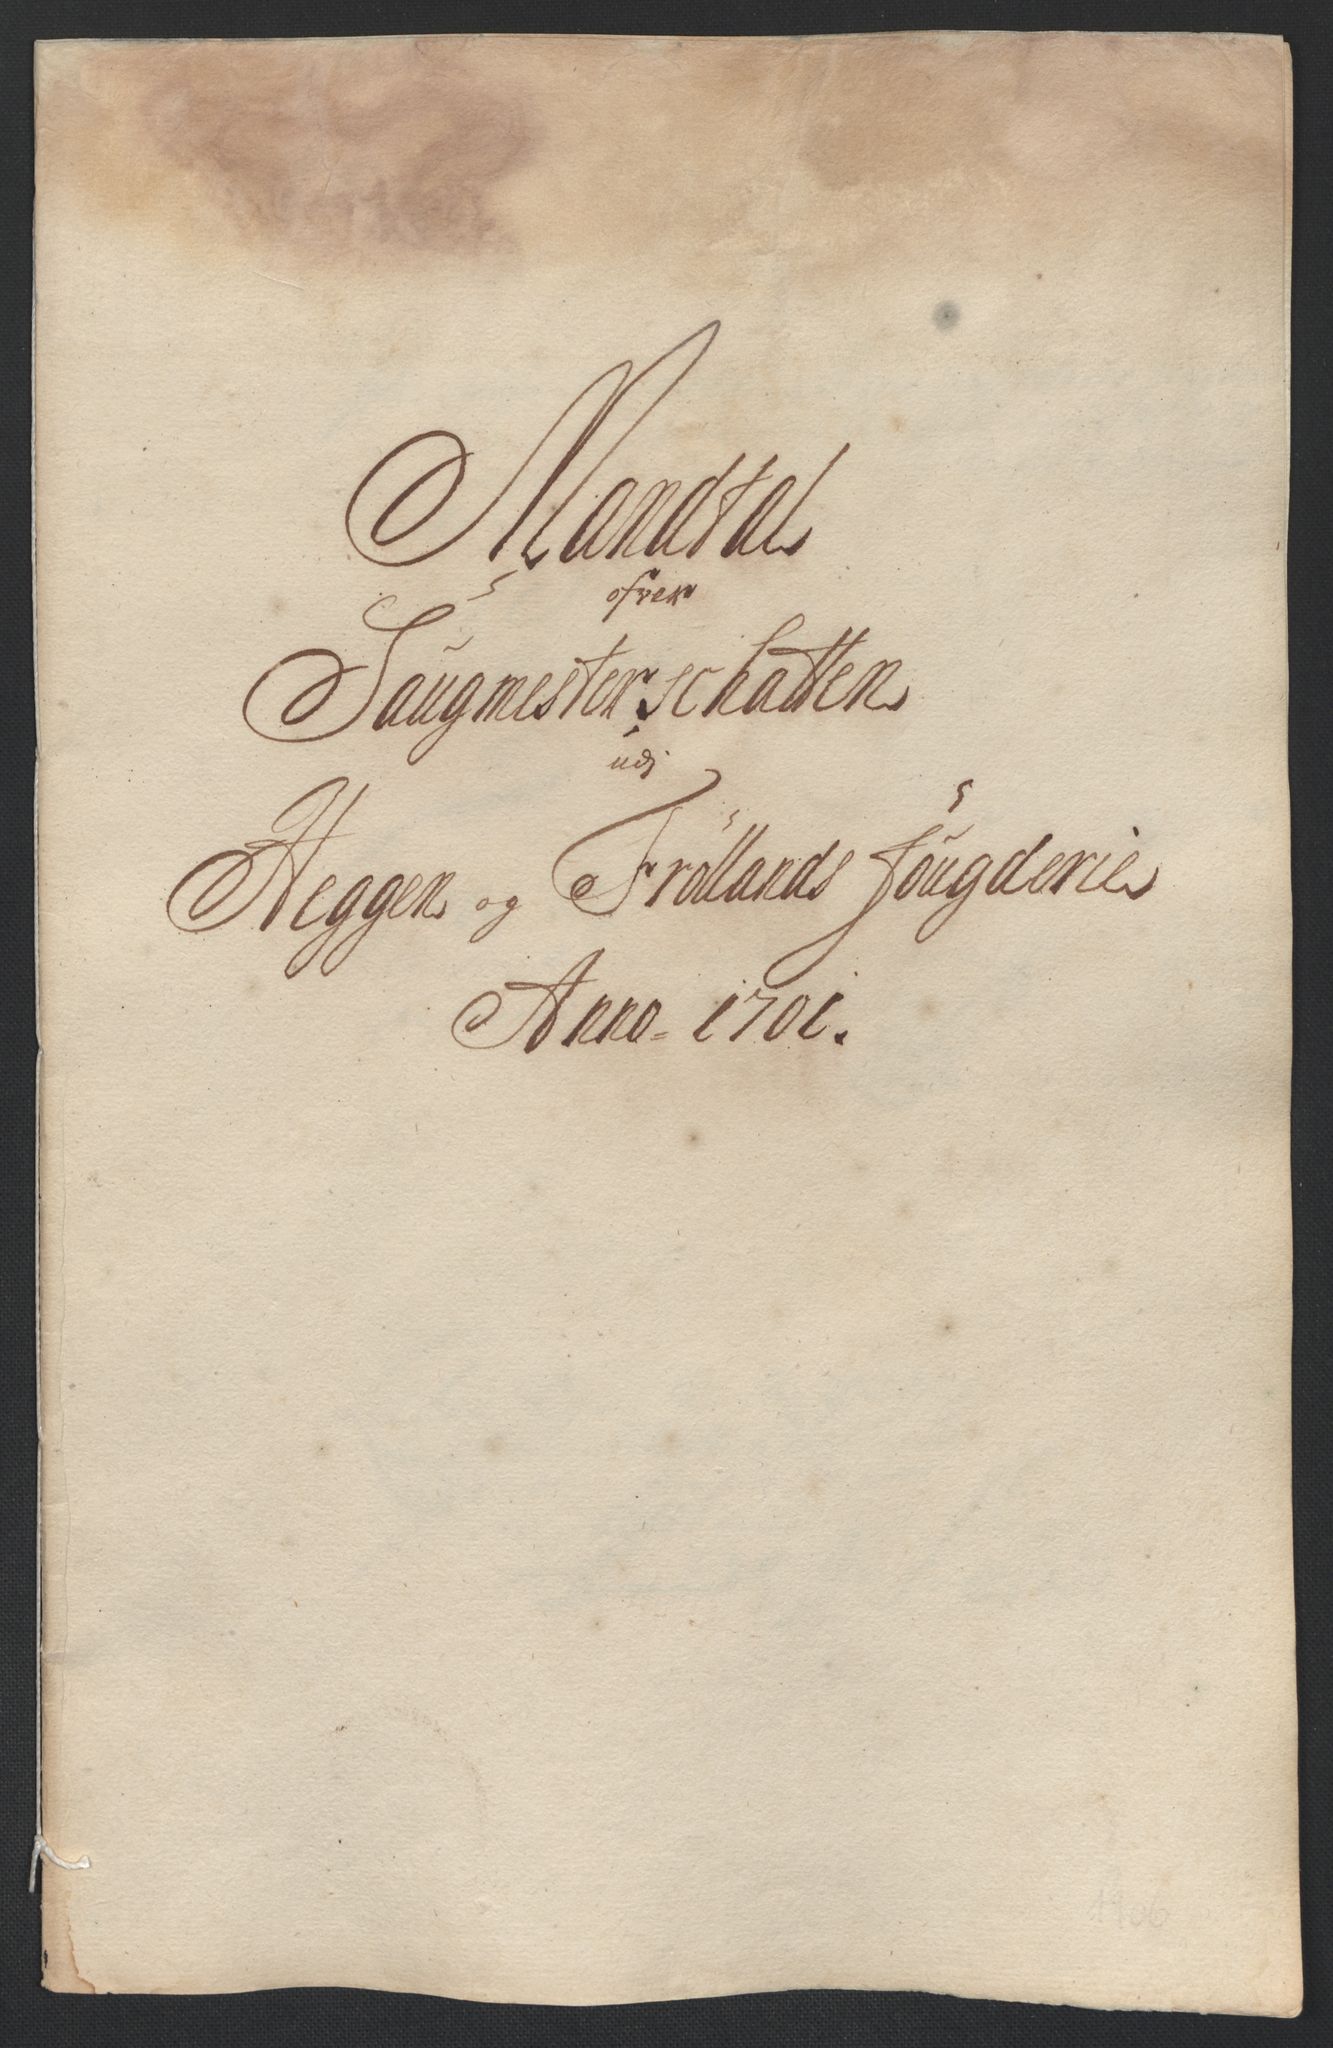 Mandtal
ofver
Saugmester schatten
udj
Heggen og Fröllands fougderie
Anno 1701.
1706